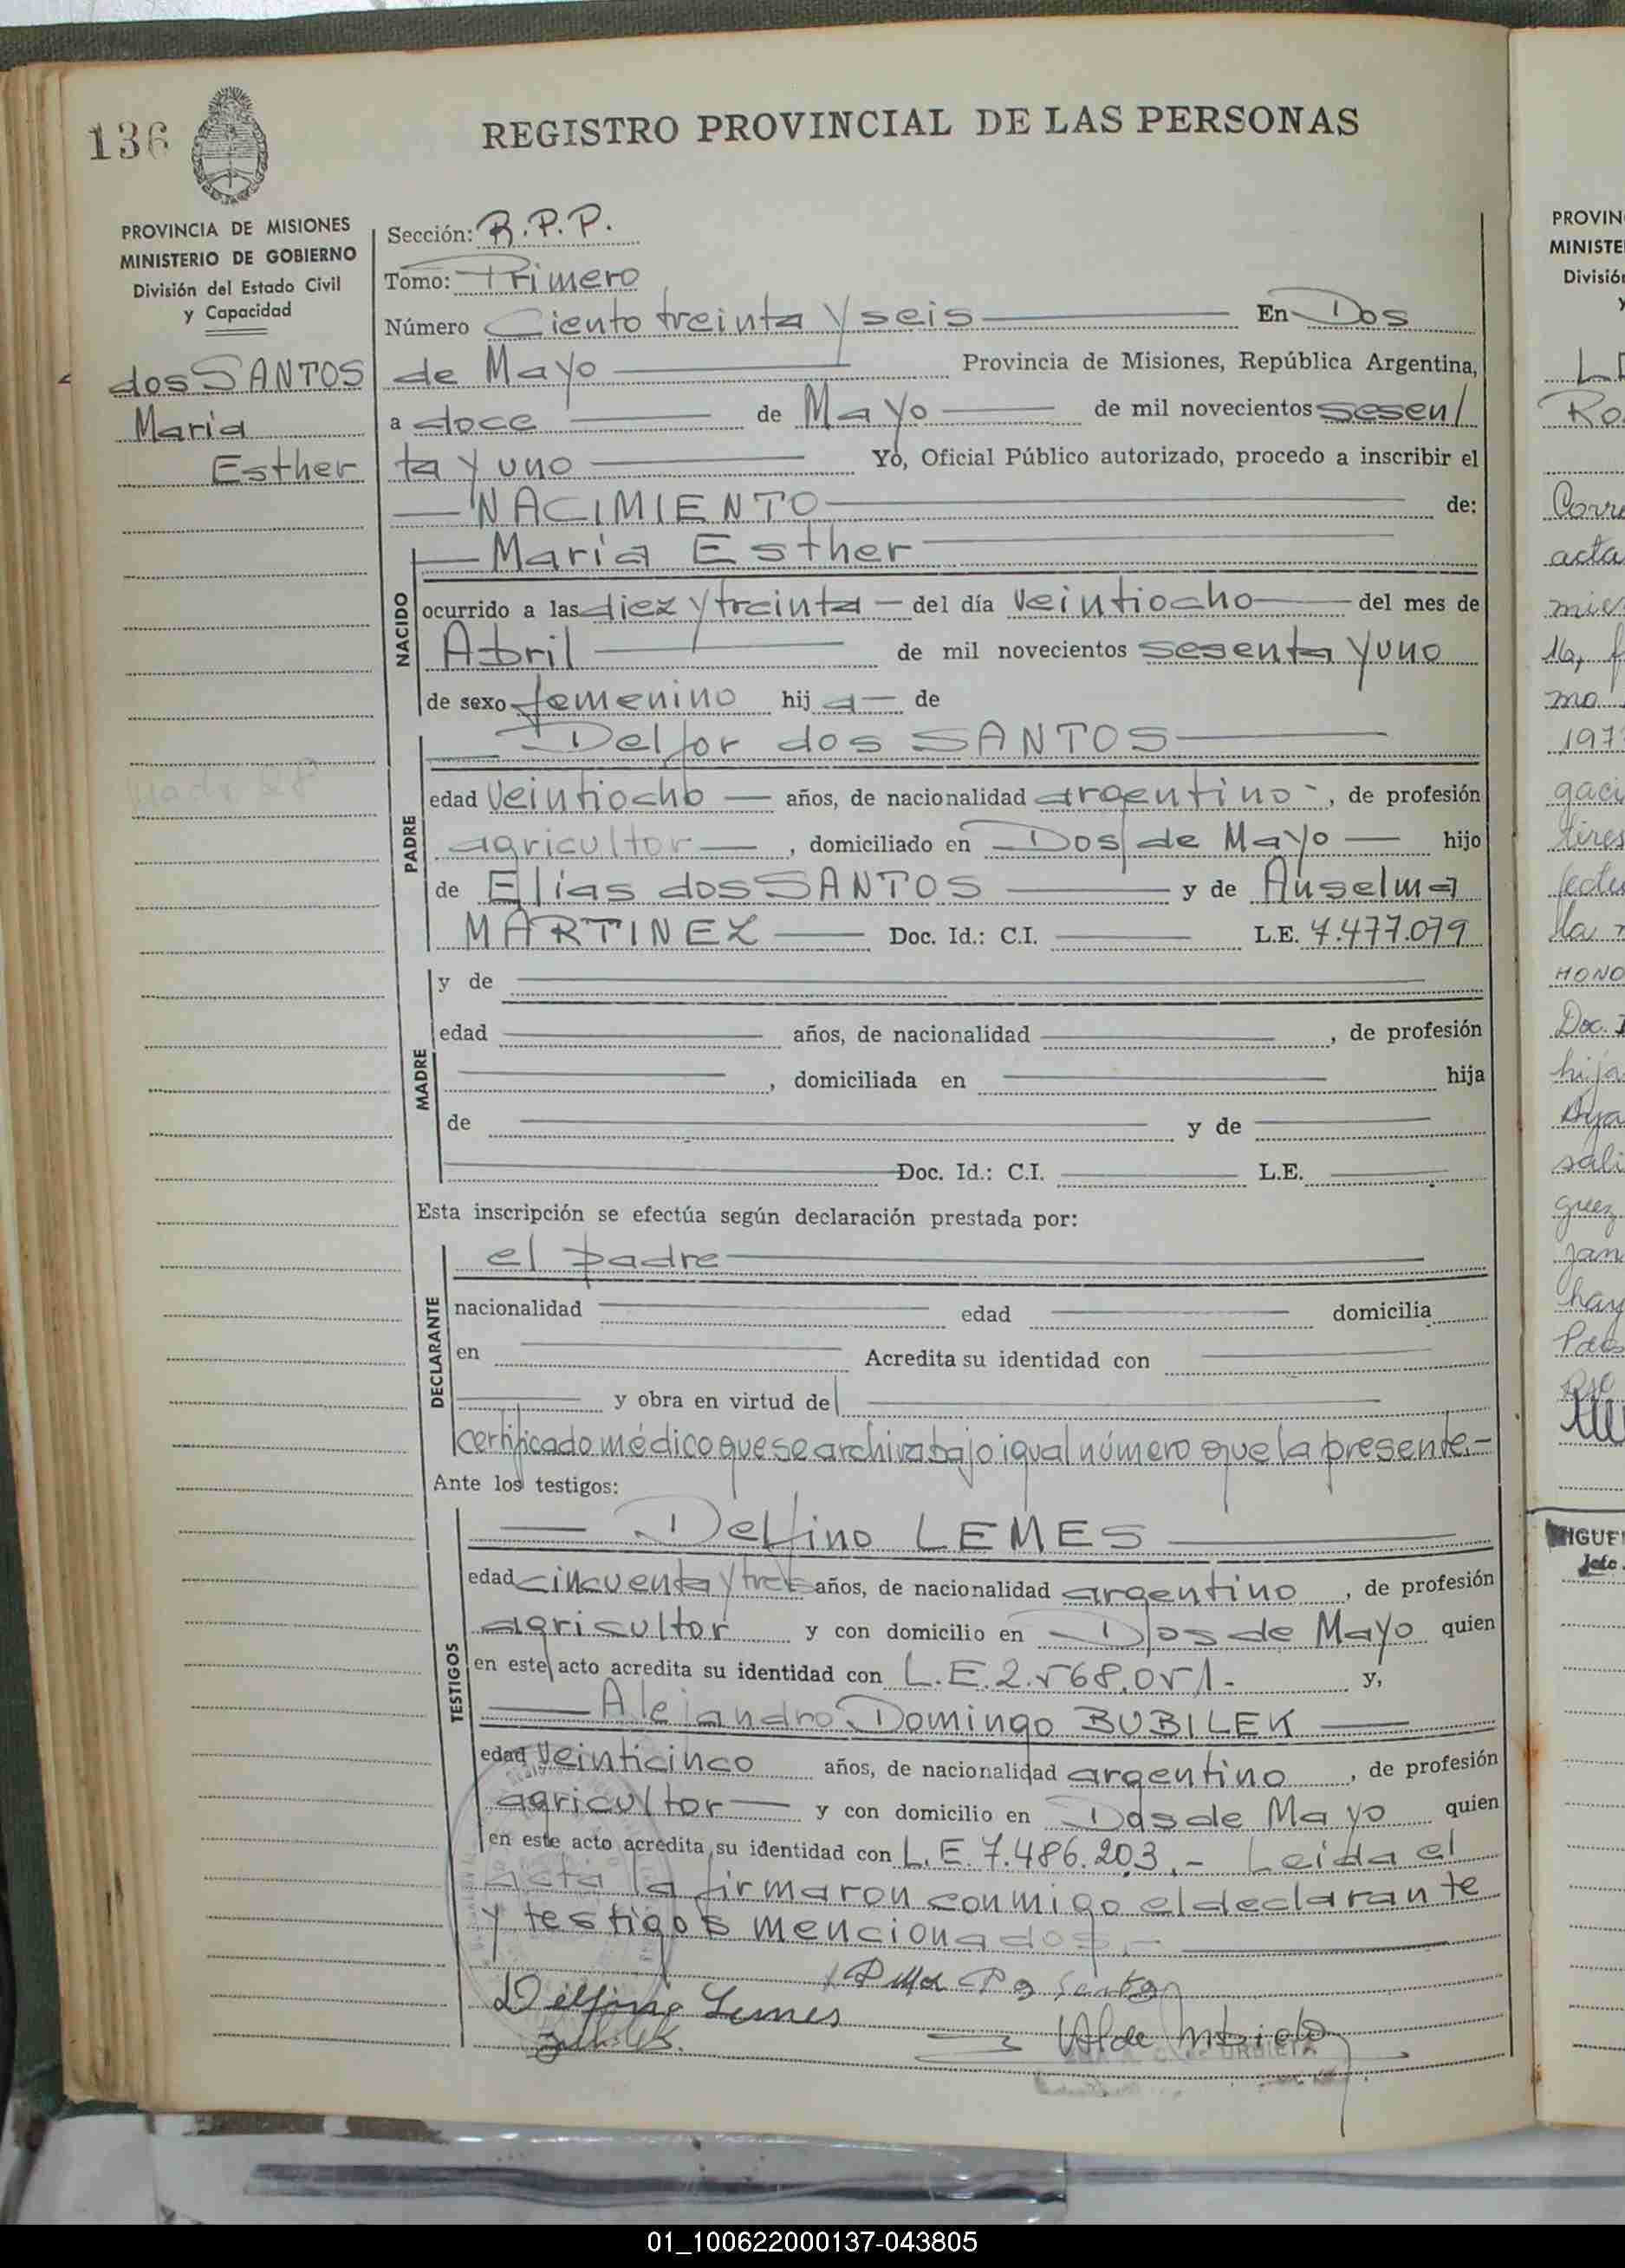 136
REGISTRO PROVINCIAL DE LAS PERSONAS
PROVINCIA DE MISIONES
MINISTERIO DE GOBIERNO
División del Estado Civil
y Capacidad
dos SANTOS
Maria
Esther
Sección: R.P.P.
Tomo: Primero
Número Ciento treinta y seis En Dos
de Mayo Provincia de Misiones, República Argentina,
a doce de Mayo de mil novecientos sesen/
ta y uno Yo, Oficial Público autorizado, procedo a inscribir el
NACIMIENTO de:
NACIDO
Maria Esther
ocurrido a las diez y treinta del día veintiocho del mes de
Abril de mil novecientos sesenta y uno
de sexo femenino hij a de
PADRE
Delfor dos SANTOS
edad veintiocho años, de nacionalidad argentino, de profesión
agricultor, domiciliado en Dos de Mayo hijo
de Elías dos SANTOS y de Anselma
MARTINEZ Doc. Id.: C.I. L.E. 7.477.079
MADRE
y de
edad años, de nacionalidad , de profesión
, domiciliada en hija
de y de
Doc. Id.: C.I. L.E.
Esta inscripción se efectúa según declaración prestada por:
DECLARANTE
el padre
nacionalidad edad domicilia
en Acredita su identidad con
y obra en virtud de
certificado médico que se archiva bajo igual número que la presente.-
Ante los testigos:
TESTIGOS
Delfino LEMES
edad cincuenta y tres años, de nacionalidad argentino, de profesión
agricultor y con domicilio en Dos de Mayo quien
en este acto acredita su identidad con L.E. 2.568.051.- y,
Alejandro Domingo BUBILEK
edad veinticinco años, de nacionalidad argentino, de profesión
agricultor y con domicilio en Dos de Mayo quien
en este acto acredita su identidad con L.E. 7.486.203.- Leida el
acta la firmaron conmigo el declarante
y testigos mencionados.-
Delfino Lemes
PROVIN
MINISTE
Divisió
y
Ro
Corre
acta
mie
mo
197
gaci
la
MONO
Doc. I
hija
sali
guez
Jan
hay
IGUE
Jefe
01_100622000137-043805